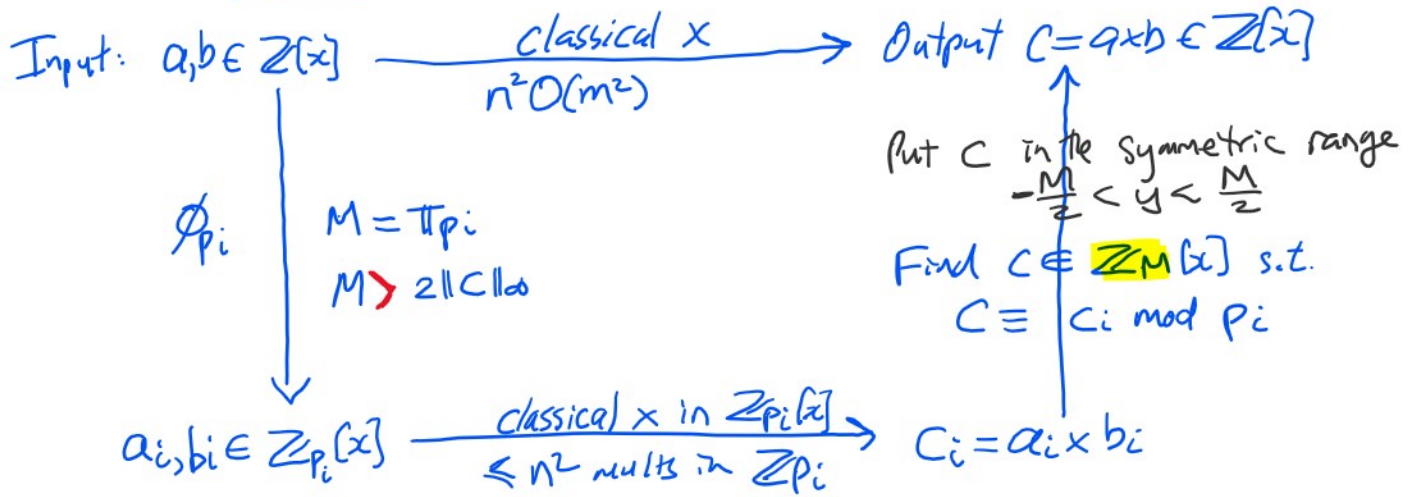 Input: a,b ∈ ℤ[x]
classical ×
n²O(m²)
Output C=a×b ∈ ℤ[x]
Put C in the symmetric range
-M/2 < y < M/2
ϕpᵢ
M = πpᵢ
M > 2‖C‖∞
Find C ∈ ℤM[x] s.t.
C ≡ Cᵢ mod Pᵢ
aᵢ,bᵢ ∈ ℤpᵢ[x]
classical × in ℤpᵢ[x]
≤ n² mults in ℤpᵢ
Cᵢ = aᵢ × bᵢ